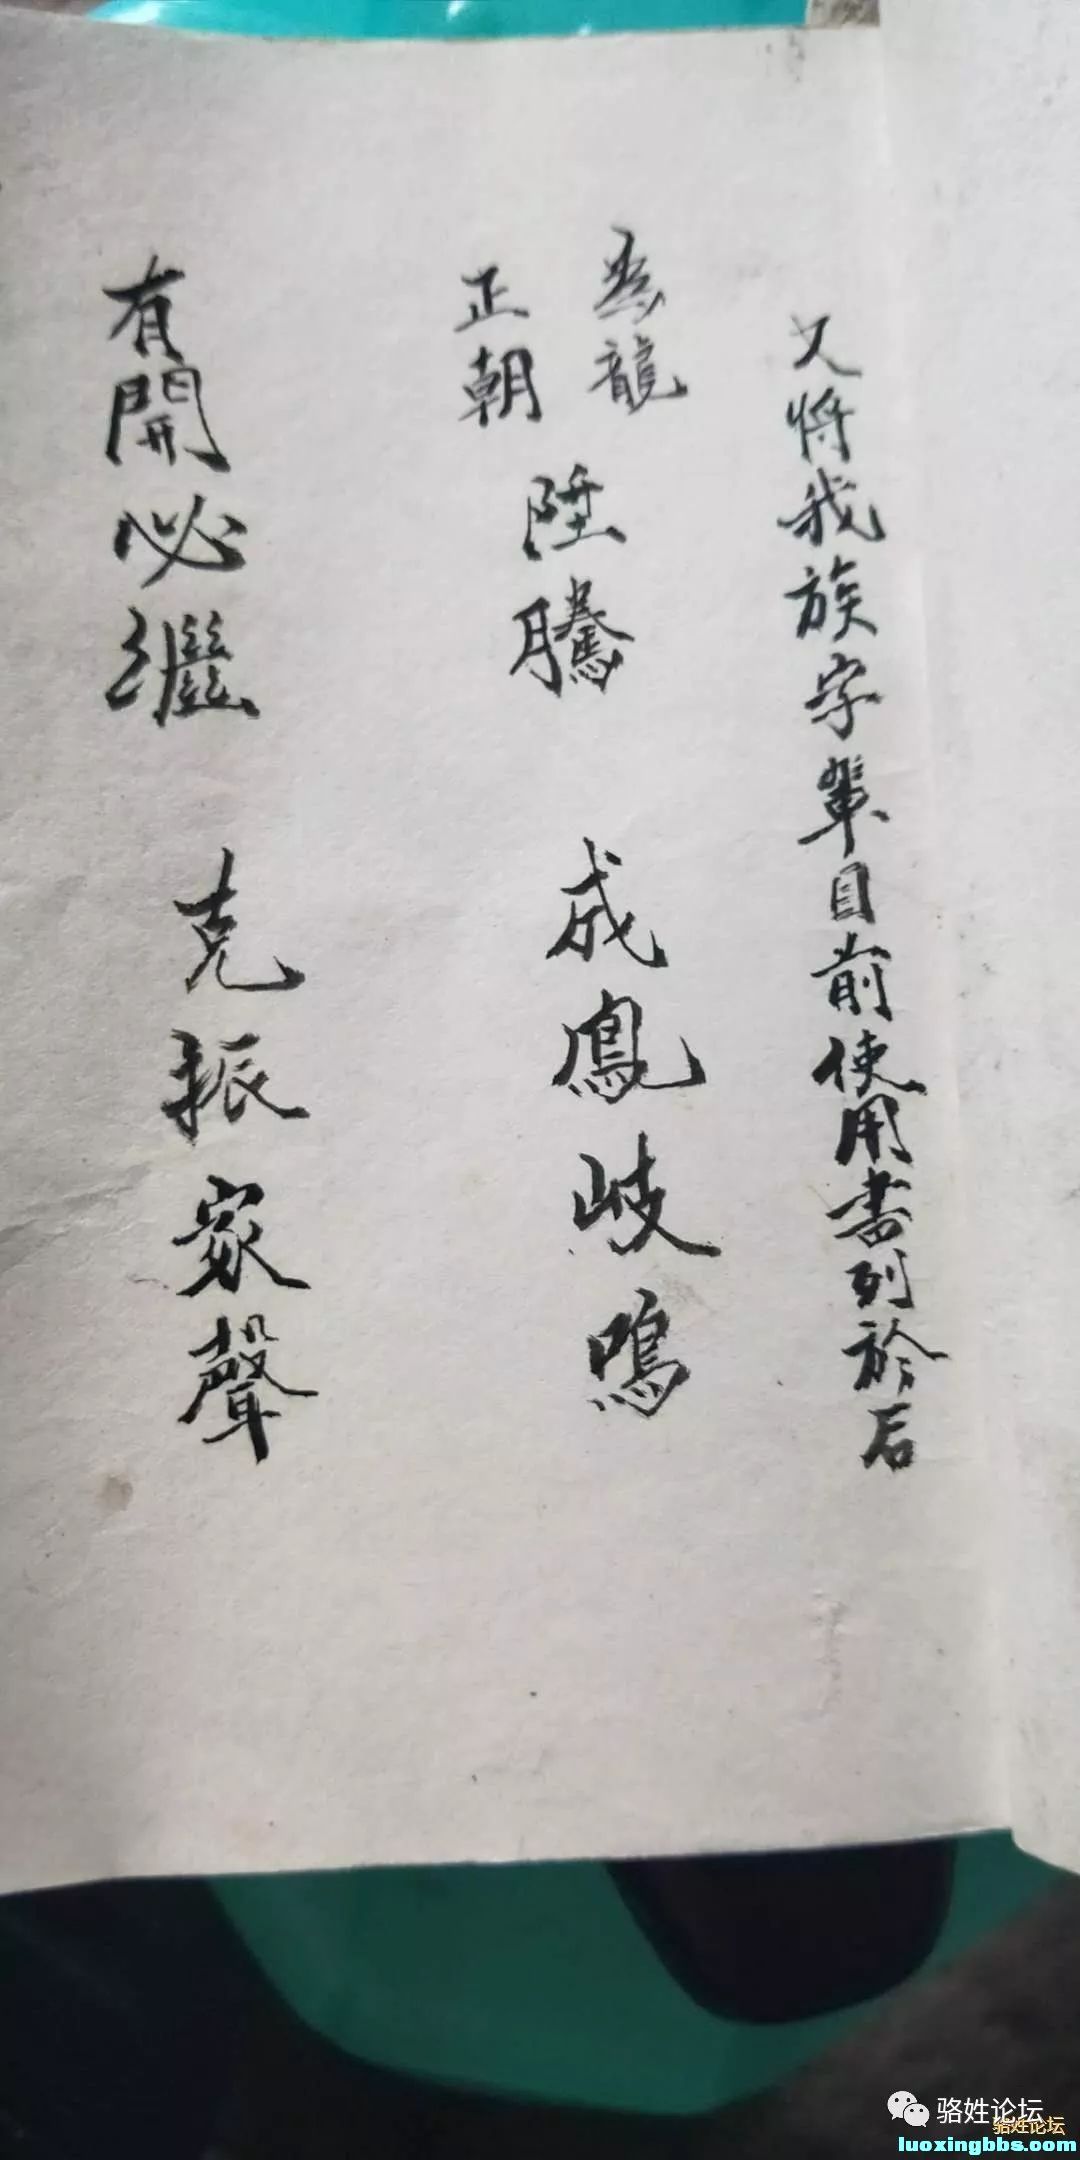 又将我族字輩目前使用書列於后
為龍
正朝
陞騰
成鳳岐鳴
有開必繼
克振家聲
骆姓论坛
骆姓论坛
luoxingbbs.com